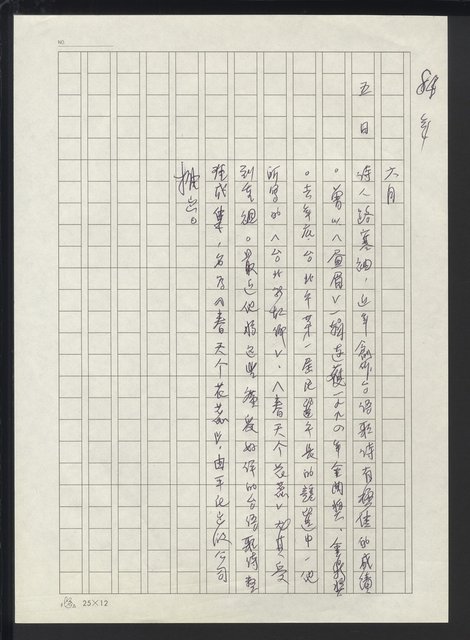 六月
五日
詩人路寒袖,近年創作台語歌詩有極佳的成績
。曾以〈畫眉〉一詞連獲一九九四年金曲獎、金鼎獎
。去年底,台北市第一屆民選市長的競選中,他
所寫的〈台北新故鄉〉、〈春天个花蕊〉尤其受
到重視。最近他將這些廣受好評的台語歌詩整
理成集,名為《春天个花蕊》,由平氏出版公司
推出。
NO.
25×12